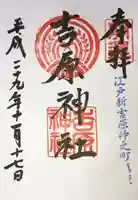 奉拝
江戸新吉原仲之町
吉原神社
平成二十九年十一月七日